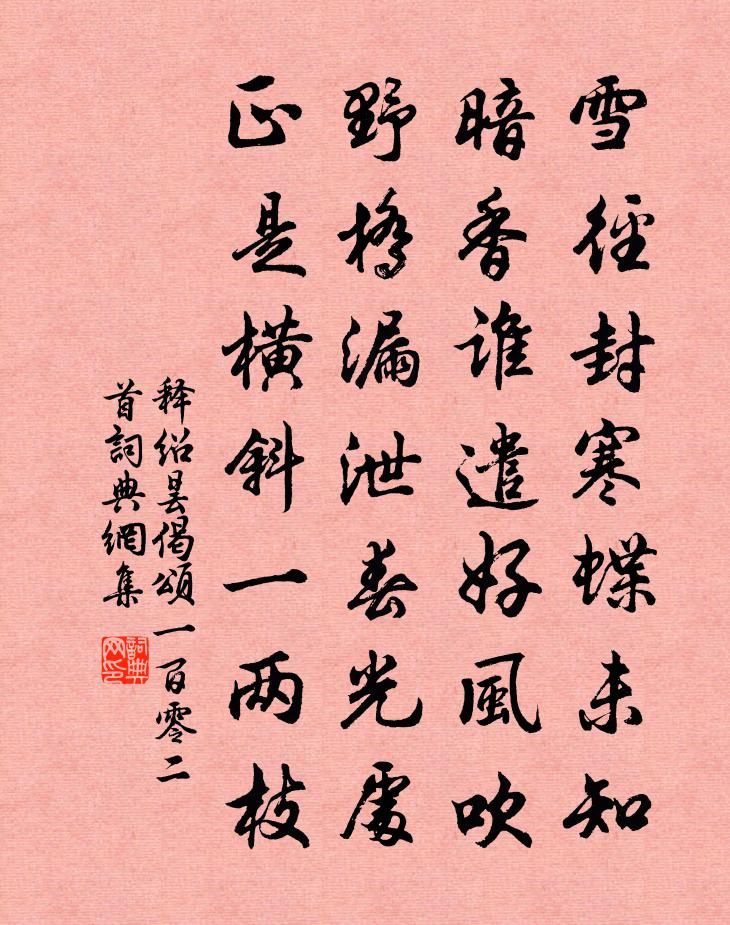 雪径封寒蝶未知
暗香谁遣好風吹
野橋漏泄春光處
正是橫斜一两枝
释绍昙偈頌一百零二
首詞典網集
詞典网印